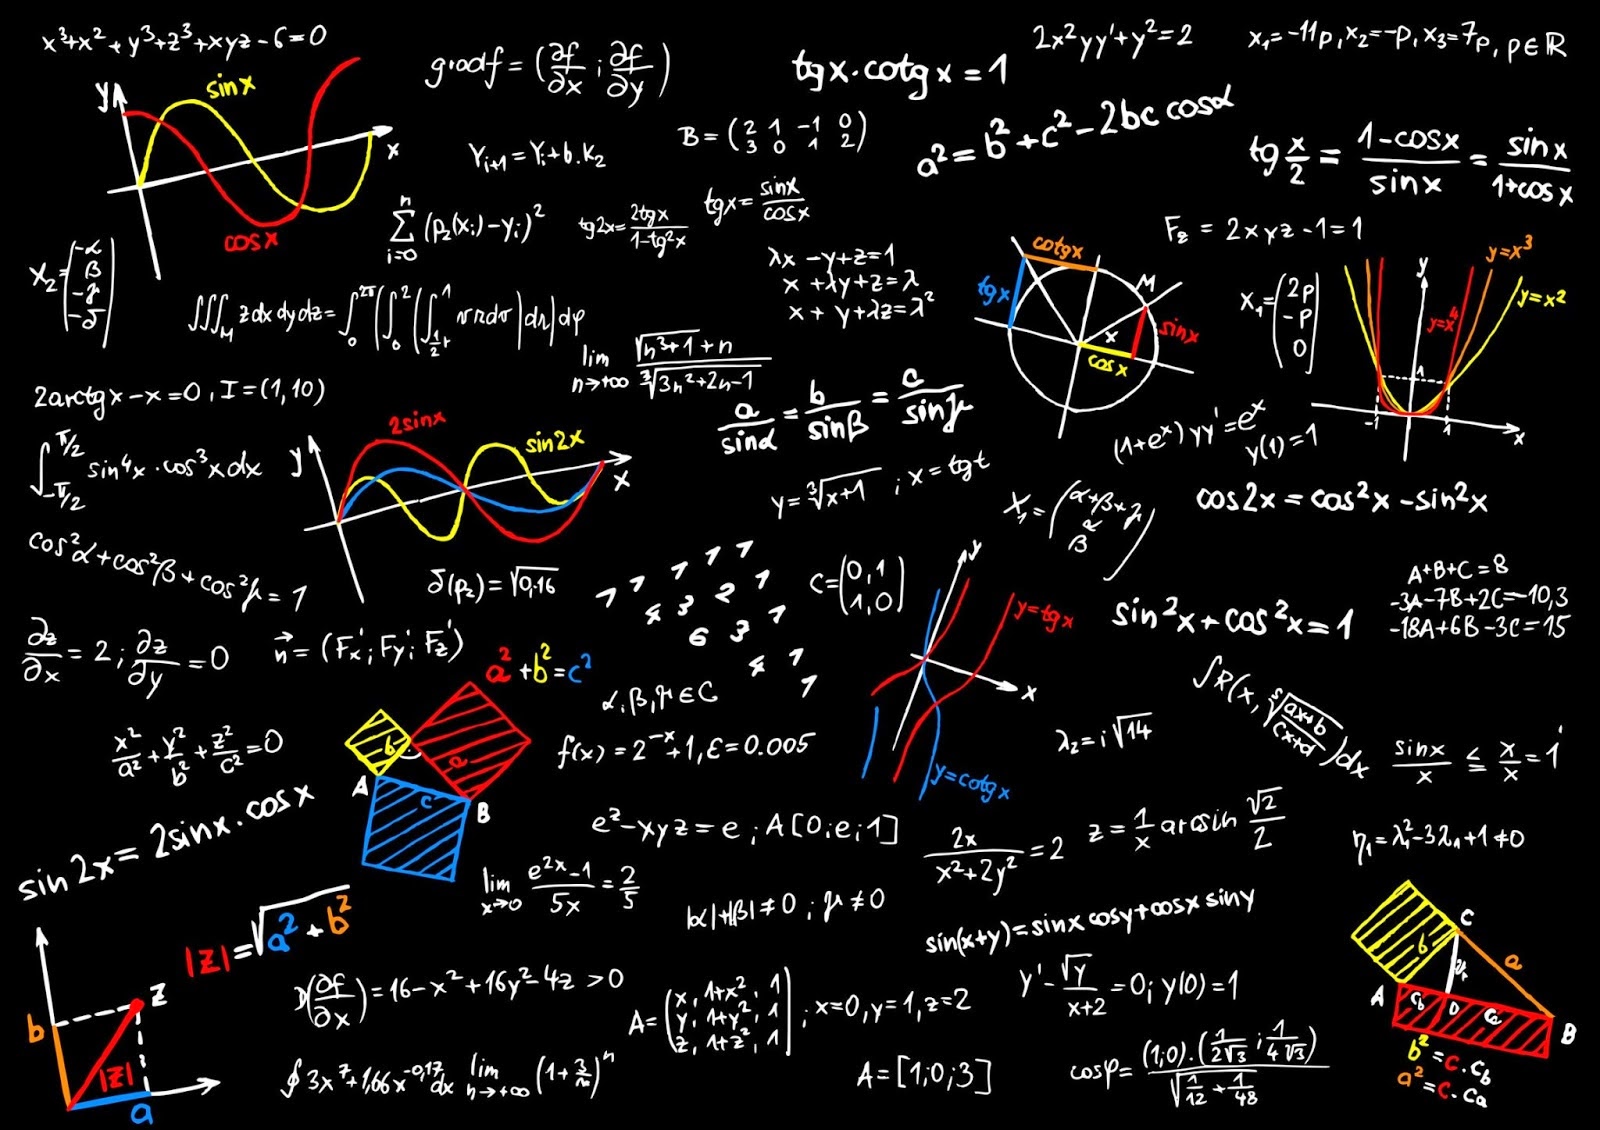 x³+x²+y³+z³+xyz-6=0
gradf = (∂f/∂x ; ∂f/∂y)
tgx·cotgx = 1
2x²yy'+y²=2
x₁=-11p, x₂=-p, x₃=7p, p∈ℝ
y
sinx
x
cosx
Y_{i+1} = Y_i + b.K₂
B = (2 1 -1 0
3 0 1 2)
a² = b²+c²-2bc cosα
tg x/2 = (1-cosx)/sinx = sinx/(1+cosx)
∑_{i=0}^{n} (p₂(x_i)-y_i)²
tg2x = 2tgx/(1-tg²x)
tgx = sinx/cosx
F_z = 2xyz-1=1
X₂ = (-α
β
-γ
-δ)
λx - y+z=1
x + λy+z=λ
x + y+λz=λ²
cotgx
tgx
M
sinx
x
cosx
X₁ = (2p
-p
0)
y
y=x³
y=x²
y=x⁴
1
-1
1
x
∭_M zdxdydz =
lim_{n→+∞} (√(n³+1)+n)/∛(3n²+2n-1)
2arctgx-x=0, I=(1,10)
a/sinα = b/sinβ = c/sinγ
(1+eˣ)yy'=eˣ
y(1)=1
∫_{-π/2}^{π/2} sin⁴x·cos³xdx
y
2sinx
sin2x
x
y=∛(x+1) ; x=tgt
X₁ = (α+β+γ
α
β)
cos2x = cos²x - sin²x
cos²α+cos²β+cos²γ=1
δ(p₂)=√0,16
1 1 1 1 1
4 3 2 1
6 3 1
4 1
1
C=(0,1
1,0)
y
y=tgx
x
y=cotgx
sin²x+cos²x=1
A+B+C=8
-3A-7B+2C=-10,3
-18A+6B-3C=15
∂z/∂x = 2 ; ∂z/∂y = 0
n⃗ = (F'x; F'y; F'z)
a²+b²=c²
b
a
c
A
B
α,β,γ∈C
∫R(x, ⁵√((ax+b)/(cx+d)))dx
x²/a²+y²/b²+z²/c²=0
f(x)=2⁻ˣ+1, ε=0.005
λ₂=i√14
sinx/x ≤ x/x = 1
sin2x = 2sinx·cosx
e^z-xyz=e ; A[0;e;1]
2x/(x²+2y²)=2
z = 1/x arcsin √2/2
η₁=λ₁²-3λ₁+1≠0
lim_{x→0} (e^{2x}-1)/5x = 2/5
|α|+|β|≠0 ; γ≠0
sin(x+y)=sinx cosy+cosx siny
|z|=√(a²+b²)
b
z
|z|
a
D(∂f/∂x)=16-x²+16y²-4z >0
A=(x, 1+x², 1
y, 1+y², 1
z, 1+z², 1) ; x=0,y=1,z=2
y'-√y/(x+2)=0; y(0)=1
C
b
a
A
D
B
b²=c.c_b
a²=c.c_a
∮3x⁷+1,66x^{-0,17}dx
lim_{n→+∞} (1+3/n)ⁿ
A=[1;0;3]
cosφ = (1;0).(1/2√3 ; 1/4√3)/√(1/12+1/48)